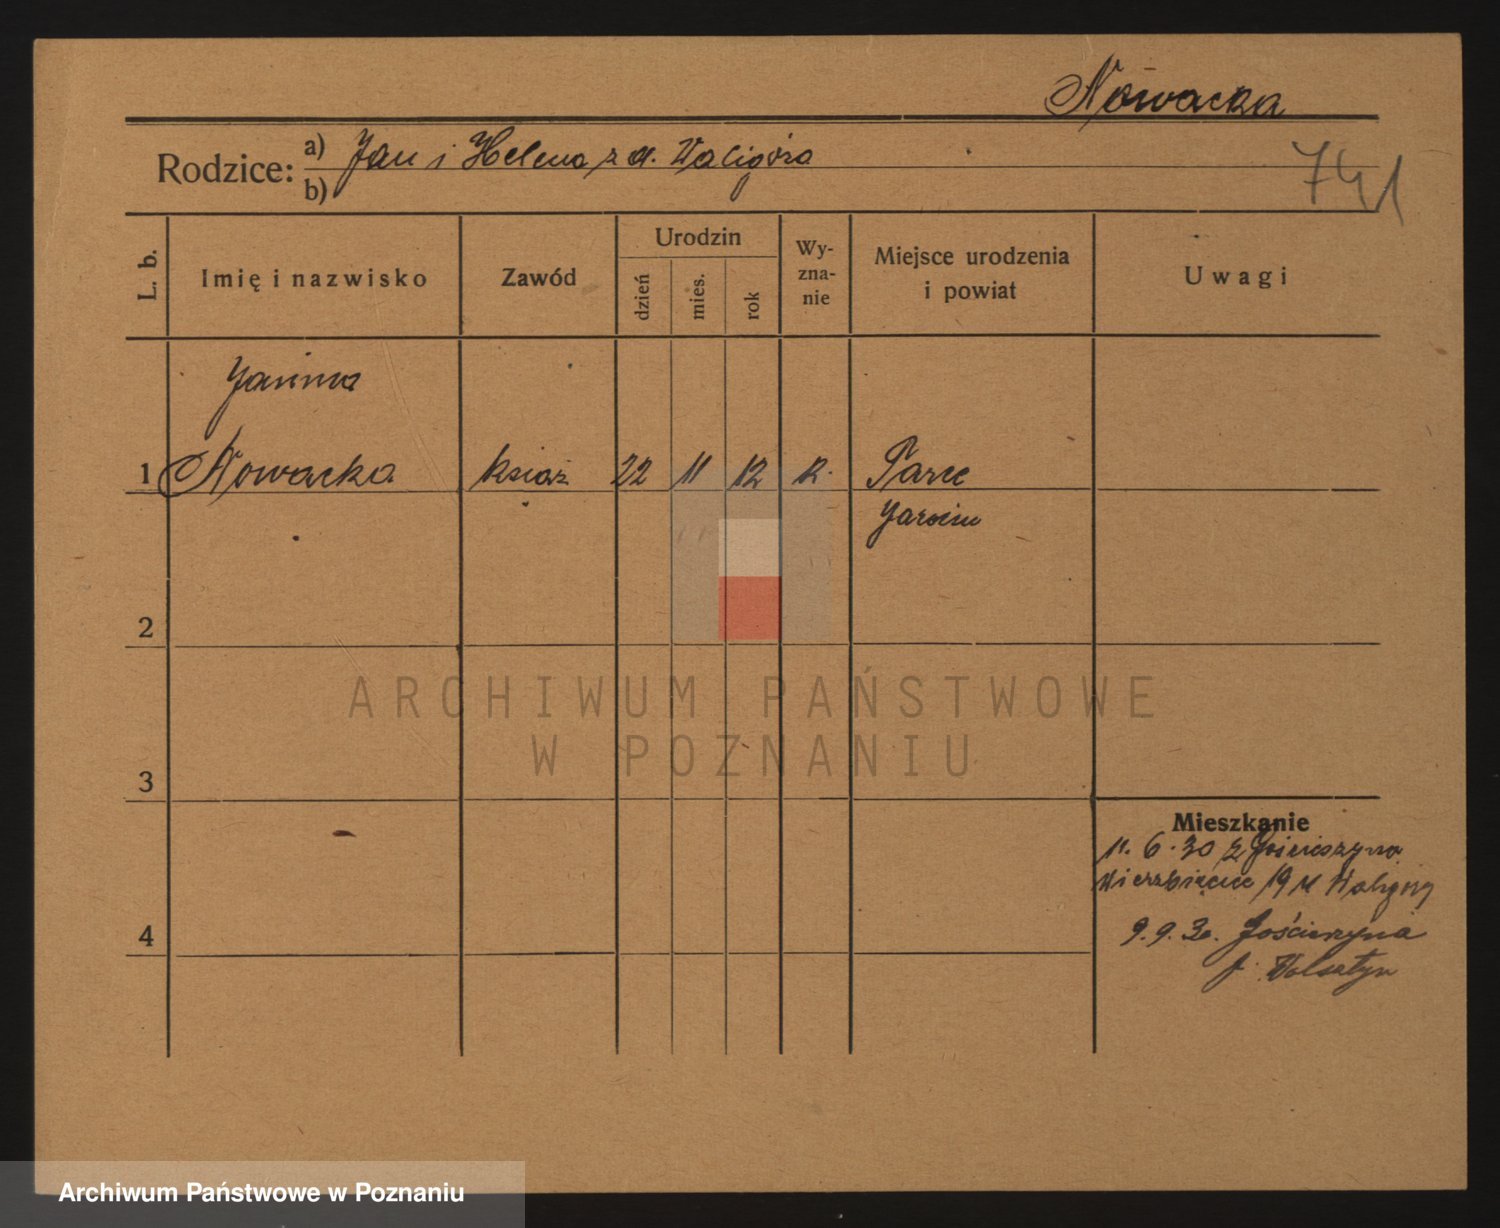 Nowacka
Rodzice: a) Jan i Helena z d. Waligóra
b)
741
L. b.
Imię i nazwisko
Zawód
Urodzin
dzień
mies.
rok
Wy-
zna-
nie
Miejsce urodzenia
i powiat
Uwagi
Janina
1 Nowacka książ 22 11 12 R.
Jarocin
2
3
4
Mieszkanie
11. 6. 30 z
Wierzbięcice 19 u Waligóry
9. 9. 30. Gościeszyna
p. Wolsztyn
ARCHIWUM PAŃSTWOWE
W POZNANIU
Archiwum Państwowe w Poznaniu